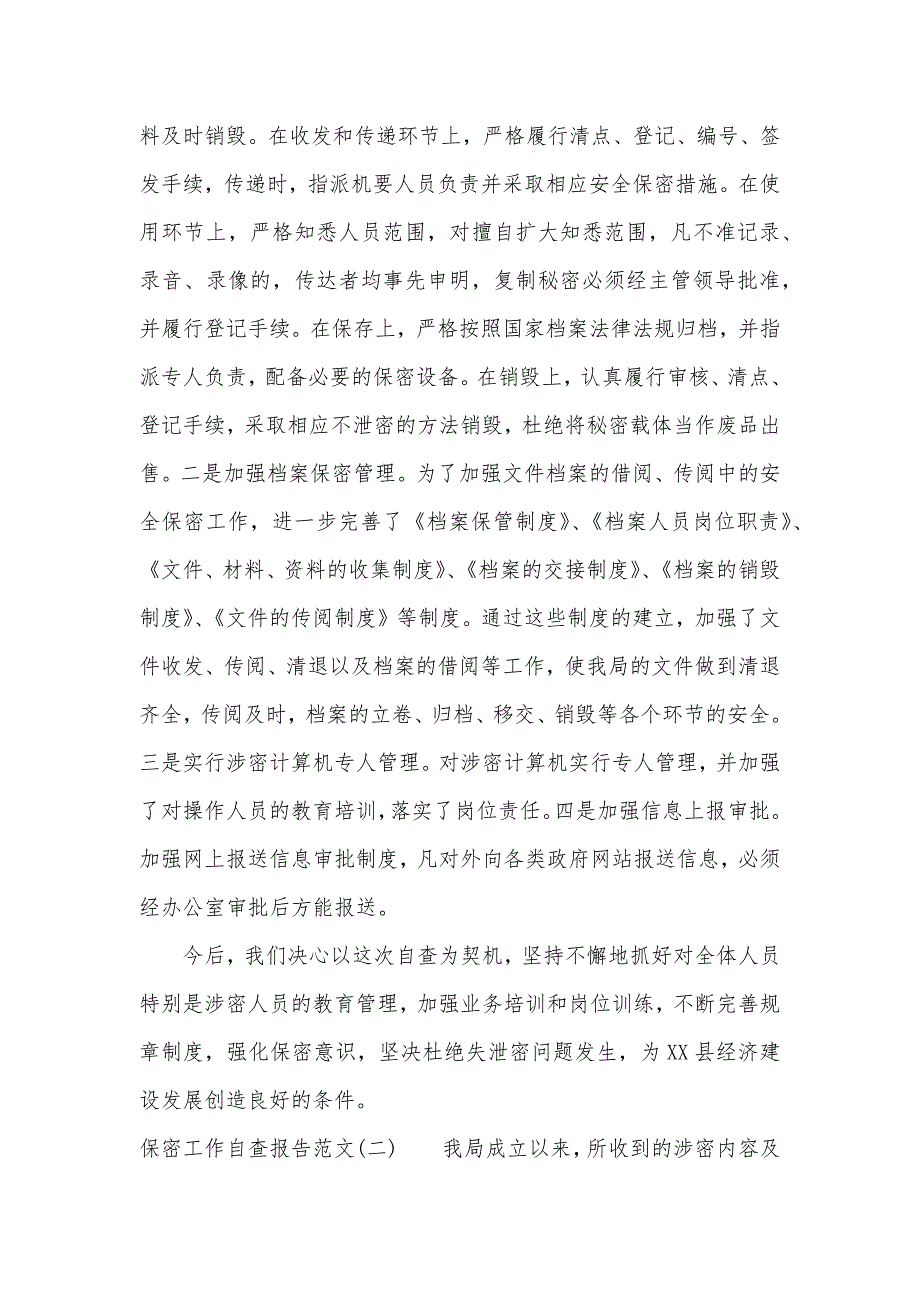 料及时销毁。在收发和传递环节上，严格履行清点、登记、编号、签
发手续，传递时，指派机要人员负责并采取相应安全保密措施。在使
用环节上，严格知悉人员范围，对擅自扩大知悉范围，凡不准记录、
录音、录像的，传达者均事先申明，复制秘密必须经主管领导批准，
并履行登记手续。在保存上，严格按照国家档案法律法规归档，并指
派专人负责，配备必要的保密设备。在销毁上，认真履行审核、清点、
登记手续，采取相应不泄密的方法销毁，杜绝将秘密载体当作废品出
售。二是加强档案保密管理。为了加强文件档案的借阅、传阅中的安
全保密工作，进一步完善了《档案保管制度》、《档案人员岗位职责》、
《文件、材料、资料的收集制度》、《档案的交接制度》、《档案的销毁
制度》、《文件的传阅制度》等制度。通过这些制度的建立，加强了文
件收发、传阅、清退以及档案的借阅等工作，使我局的文件做到清退
齐全，传阅及时，档案的立卷、归档、移交、销毁等各个环节的安全。
三是实行涉密计算机专人管理。对涉密计算机实行专人管理，并加强
了对操作人员的教育培训，落实了岗位责任。四是加强信息上报审批。
加强网上报送信息审批制度，凡对外向各类政府网站报送信息，必须
经办公室审批后方能报送。
今后，我们决心以这次自查为契机，坚持不懈地抓好对全体人员
特别是涉密人员的教育管理，加强业务培训和岗位训练，不断完善规
章制度，强化保密意识，坚决杜绝失泄密问题发生，为 XX 县经济建
设发展创造良好的条件。
保密工作自查报告范文(二)　　我局成立以来，所收到的涉密内容及